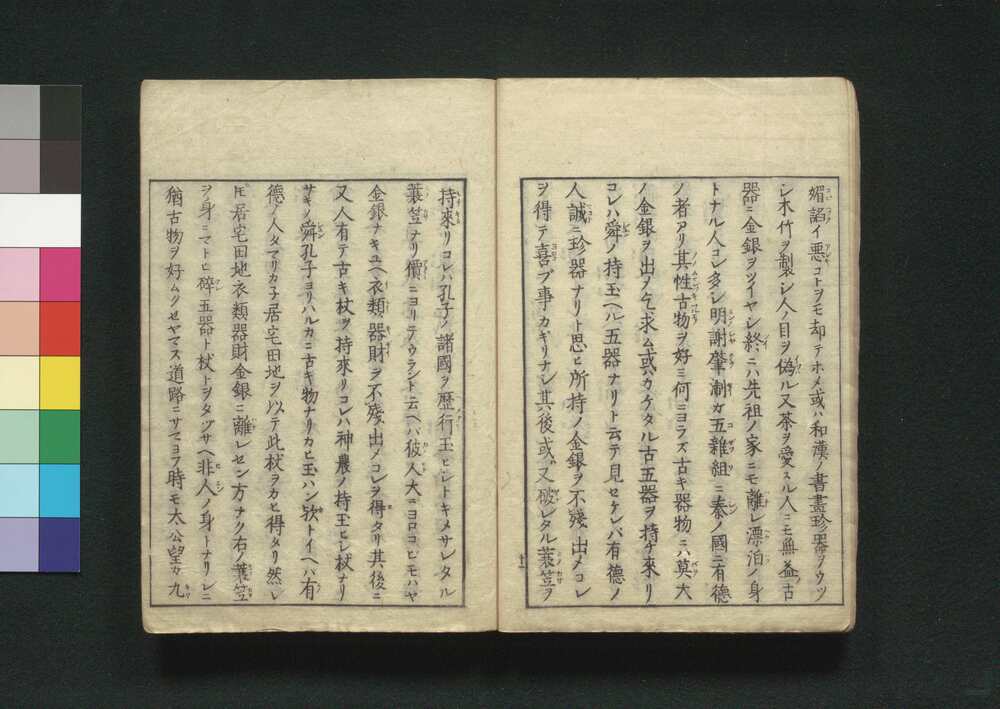 媚諂イ悪コトヲモ却テホメ或ハ和漢ノ書畫珍器ノウツ
シ木竹ヲ製シ人ノ目ヲ偽ル又茶ヲ愛スル人ニモ無益ニ古
器ニ金銀ヲツイヤシ終ニハ先祖ノ家ニモ離レ漂泊ノ身
トナル人コレ多シ明謝肇淛ガ五雜組ニ秦ノ國ニ有徳
ノ者アリ其性古物ヲ好ミ何ニヨラズ古キ器物ニハ莫大
ノ金銀ヲ出メ乞求ム或ハカケタル古五器ヲ持チ來リ
コレハ舜ノ持玉ヘル五器ナリト云テ見セケレバ有徳ノ
人誠ニ珍器ナリト思ヒ所持ノ金銀ヲ不殘出メコレ
ヲ得テ喜ブ事カギリナシ其後或ハ又破レタル蓑笠ヲ
十二
持來リコレハ孔子ノ諸國ヲ歴行玉ヒシトキメサレタル
蓑笠ナリ價ニヨリテウラント云ヘバ彼人大ニヨロコビモハヤ
金銀ナキユヘ衣類器財ヲ不殘出メコレヲ得タリ其後ニ
又人有テ古キ杖ヲ持來リコレハ神農ノ持玉ヒシ杖ナリ
サキノ舜孔子ヨリハルカニ古キ物ナリカヒ玉ハン欤トイヘバ有
徳ノ人タマリカ子居宅田地ヲ以テ此杖ヲカヒ得タリ然レ
𪜈居宅田地衣類器財金銀ニ離レセン方ナク右ノ蓑笠
ヲ身ニマトヒ碎五器ト杖トヲタヅサヘ非人ノ身トナリシニ
猶古物ヲ好ムクセヤマズ道路ニサマヨフ時モ太公望カ九